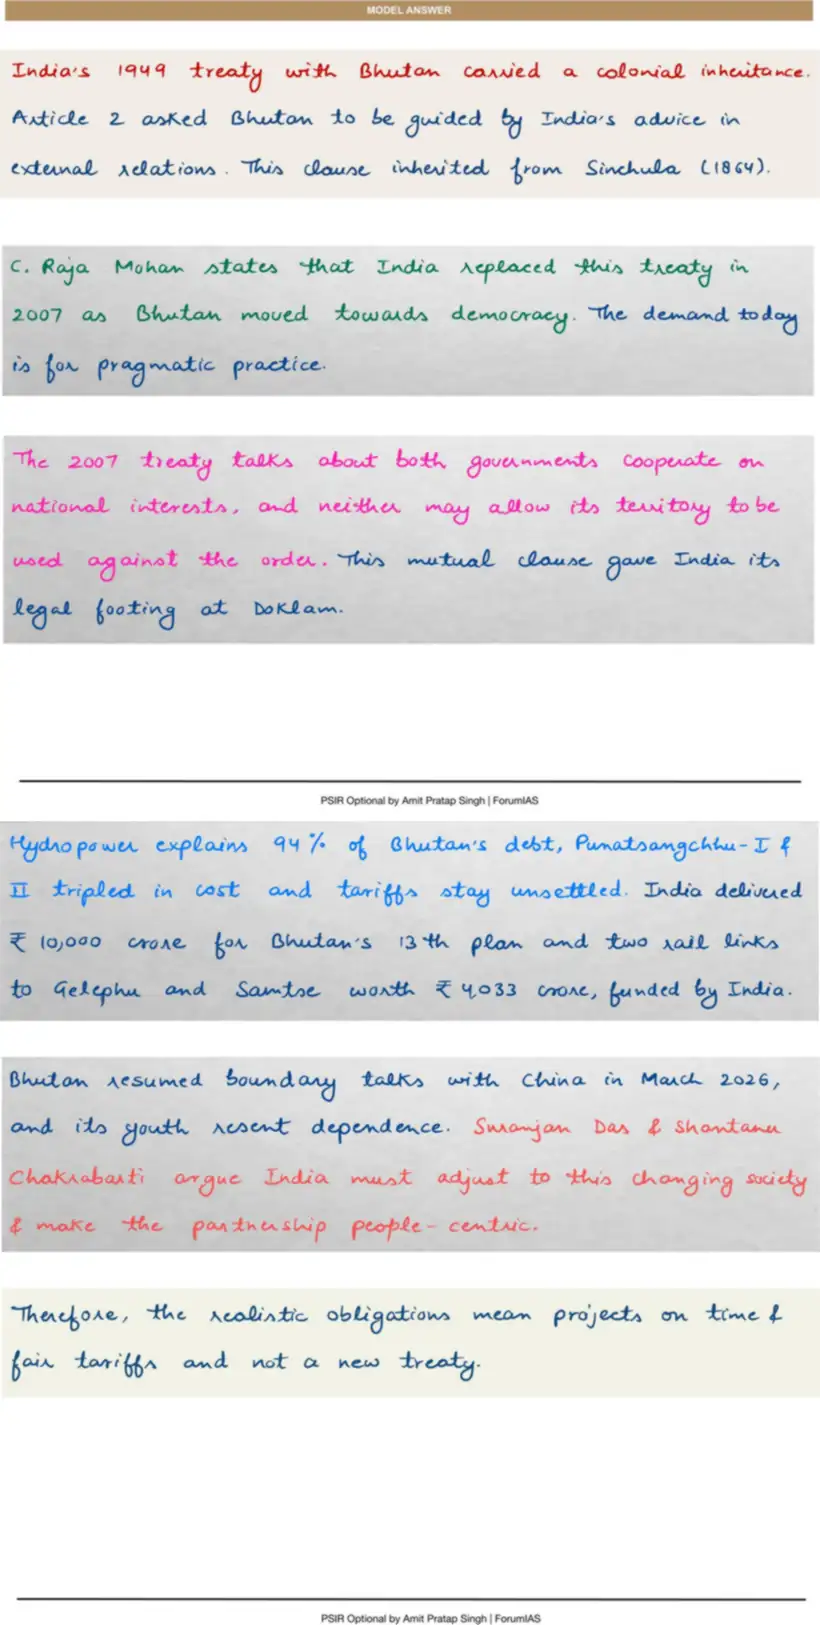 MODEL ANSWER
India's 1949 treaty with Bhutan carried a colonial inheritance.
Article 2 asked Bhutan to be guided by India's advice in
external relations. This clause inherited from Sinchula (1864).
C. Raja Mohan states that India replaced this treaty in
2007 as Bhutan moved towards democracy. The demand today
is for pragmatic practice.
The 2007 treaty talks about both governments cooperate on
national interests, and neither may allow its territory to be
used against the order. This mutual clause gave India its
legal footing at Doklam.
PSIR Optional by Amit Pratap Singh | ForumIAS
Hydropower explains 94% of Bhutan's debt, Punatsangchhu-I &
II tripled in cost and tariffs stay unsettled. India delivered
₹ 10,000 crore for Bhutan's 13th plan and two rail links
to Gelephu and Samtse worth ₹ 4,033 crore, funded by India.
Bhutan resumed boundary talks with China in March 2026,
and its youth resent dependence. Suranjan Das & Shantanu
Chakrabarti argue India must adjust to this changing society
& make the partnership people-centric.
Therefore, the realistic obligations mean projects on time &
fair tariffs and not a new treaty.
PSIR Optional by Amit Pratap Singh | ForumIAS